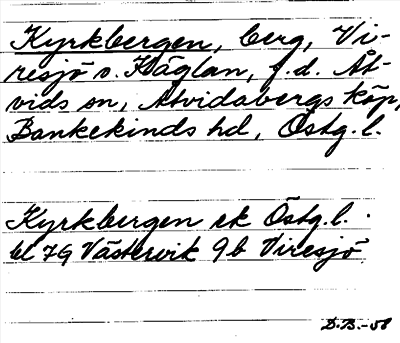 Kyrkbergen, berg, Vi-
resjö o. Häglan, f.d. Åt-
vids sn, Åtvidabergs köp,
Bankekinds hd, Östg. l.
Kyrkbergen ek Östg. l.
bl 7G Västervik 9b Viresjö
D.B.-58